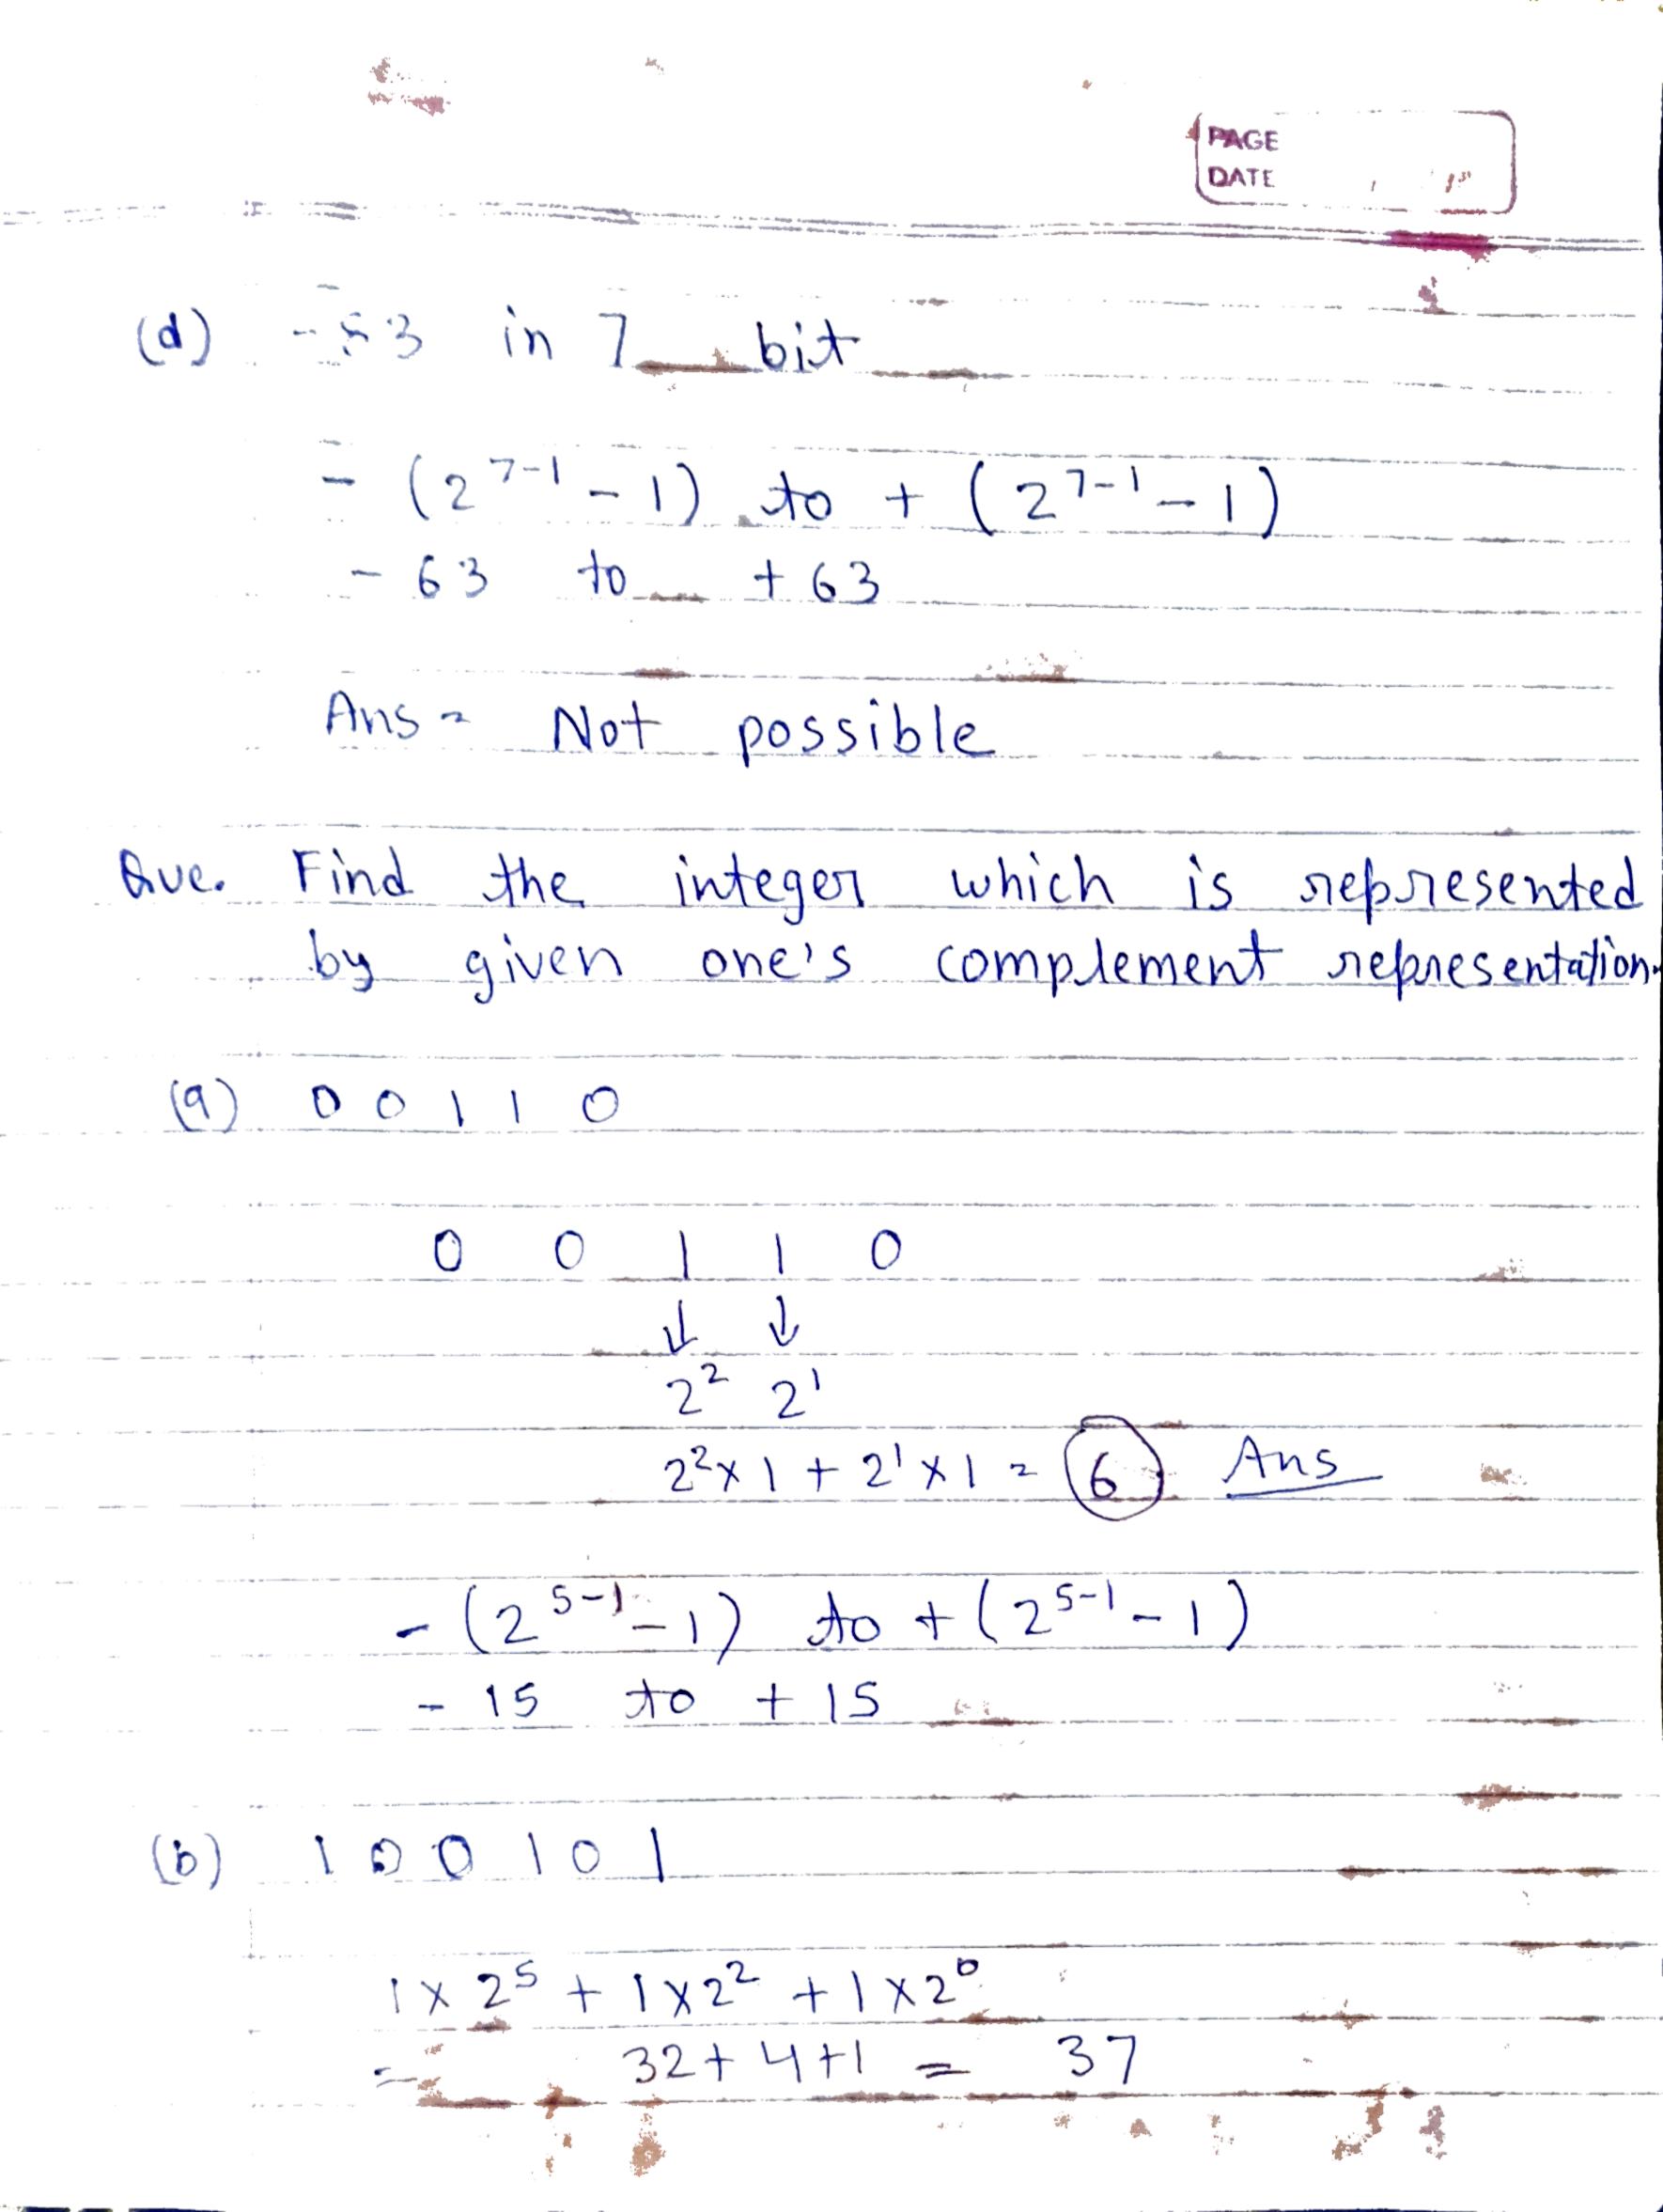 PAGE
DATE
(d) - 3 in 7 bit
- (2^7-1 - 1) to + (2^7-1 - 1)
- 63 to + 63
Ans = Not possible
Que. Find the integer which is represented
by given one's complement representation.
(a) 0 0 1 1 0
0 0 1 1 0
↓ ↓
2^2 2^1
2^2 x 1 + 2^1 x 1 = 6 Ans
- (2^5-1 - 1) to + (2^5-1 - 1)
- 15 to + 15
(b) 1 0 0 1 0 1
1 x 2^5 + 1 x 2^2 + 1 x 2^0
= 32 + 4 + 1 = 37